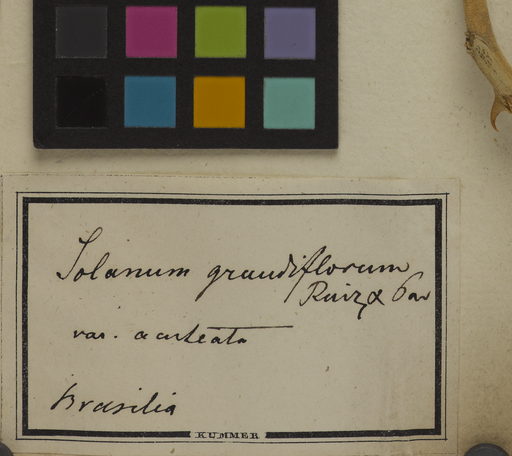 Solanum grandiflorum
Ruiz & Pav
var. aculeata
Brasilia
KUMMER